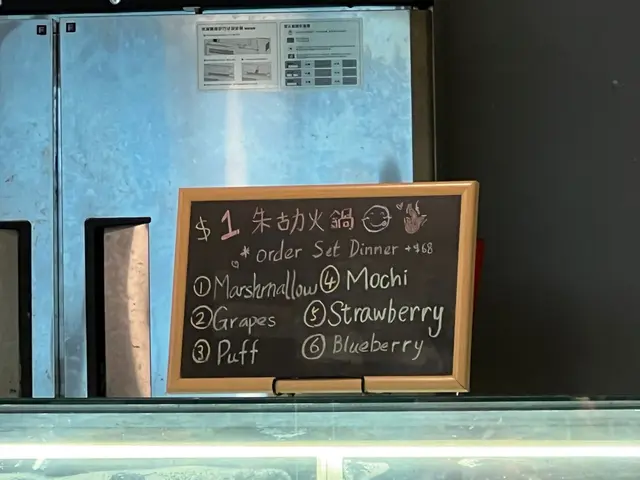 $1 朱古力火鍋
* order Set Dinner +$68
① Marshmallow ④ Mochi
② Grapes ⑤ Strawberry
③ Puff ⑥ Blueberry